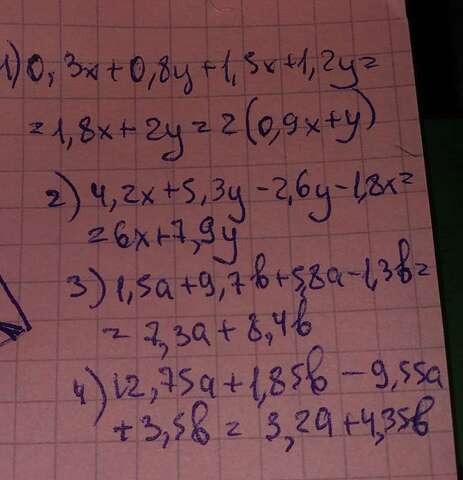 1) 0,3x+0,8y+1,5x+1,2y=
=1,8x+2y=2(0,9x+y)
2) 4,2x+5,3y-2,6y-1,8x=
=6x+7,9y
3) 1,5a+9,7b+5,8a-1,3b=
=7,3a+8,4b
4) 12,75a+1,85b-9,55a
+3,5b=3,2a+4,35b